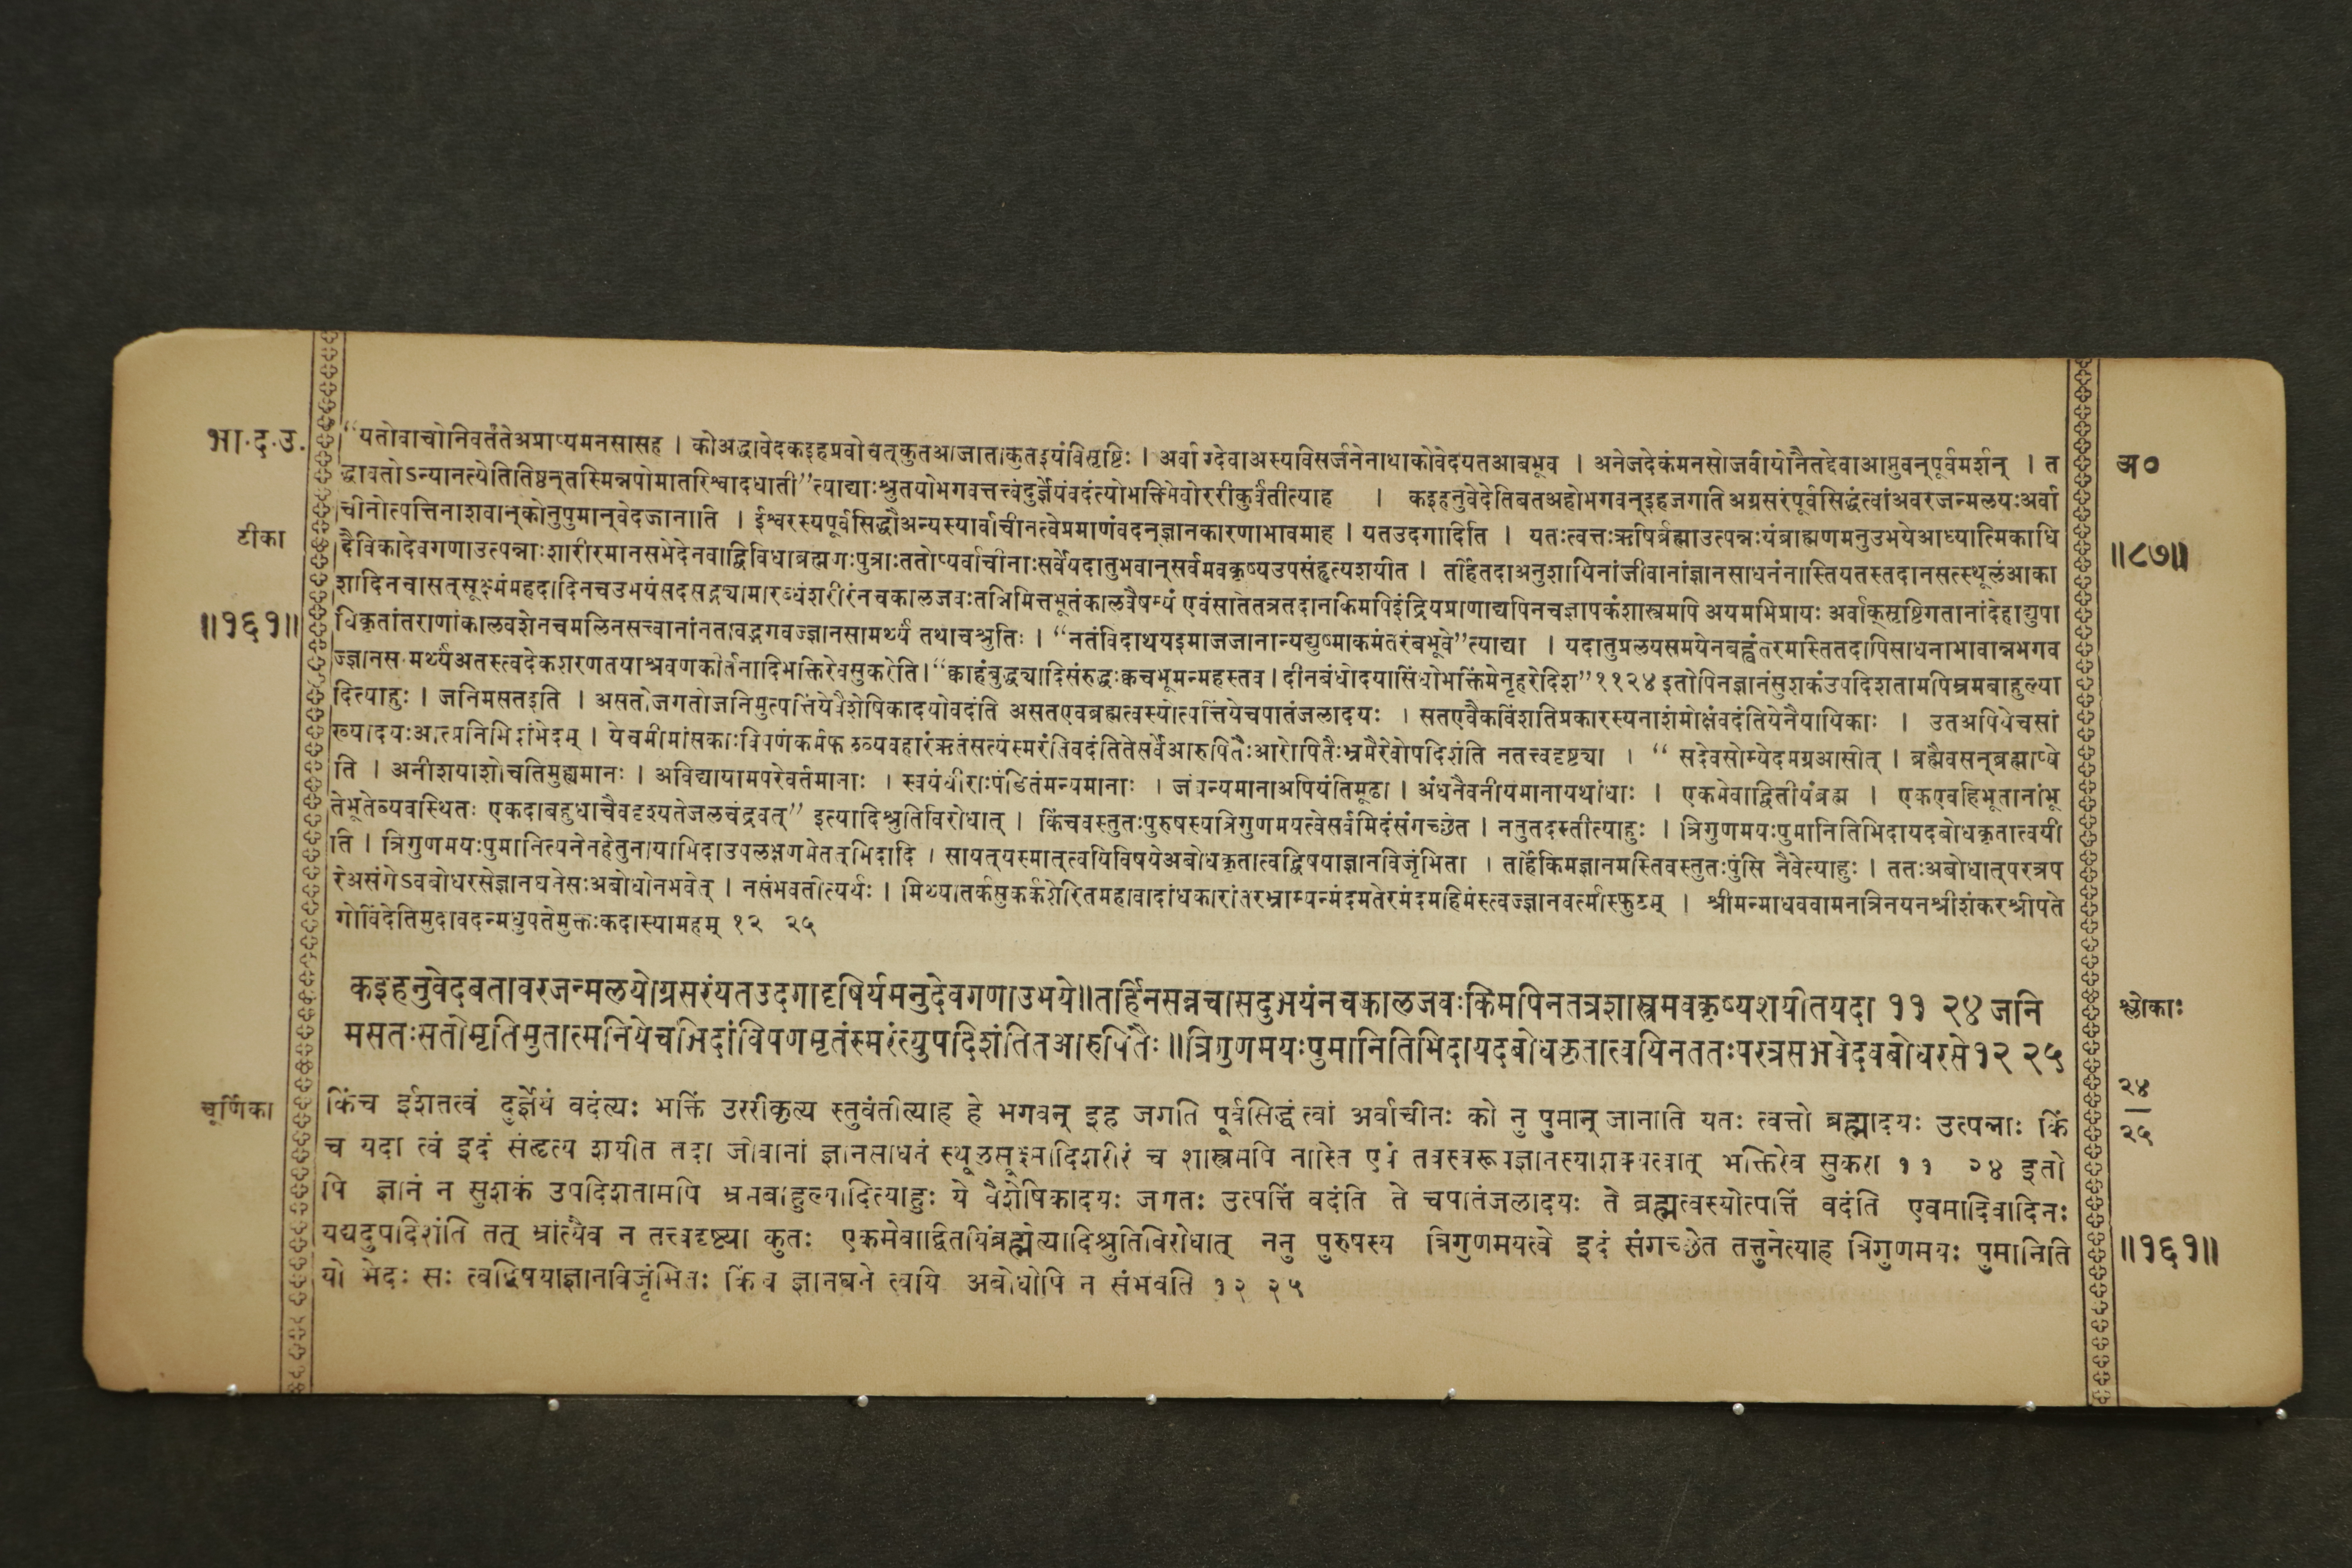 भा.द.उ.
“यतोवाचोनिवर्तंतेअप्राप्यमनसासह । कोअद्धावेदकइहप्रवोचत्कुतआजाताकुतइयंविसृष्टिः । अर्वाग्देवाअस्यविसर्जनेनाथाकोवेदयतआबभूव । अनेजदेकंमनसोजवीयोनैतद्देवाआप्नुवन्पूर्वमर्शन् । त
अ०
द्धावतोऽन्यानत्येतितिष्ठन्तस्मिन्नपोमातरिश्वादधाती”त्याद्याःश्रुतयोभगवत्तत्त्वंदुर्ज्ञेयंवदंत्योभक्तिमेवोररीकुर्वंतीत्याह । कइहनुवेदेतिबतअहोभगवन्इहजगति अग्रसरंपूर्वसिद्धंत्वांअवरजन्मलयःअर्वा
टीका
चीनोत्पत्तिनाशवान्कोनुपुमान्वेदजानाति । ईश्वरस्यपूर्वसिद्धौअन्यस्यार्वाचीनत्वेप्रमाणंवदन्ज्ञानकारणाभावमाह । यतउदगादिति । यतःत्वत्तःऋषिर्ब्रह्माउत्पन्नःयंब्राह्मणमनुउभयेआध्यात्मिकाधि
॥८७॥
दैविकादेवगणाउत्पन्नाःशारीरमानसभेदेनवाद्विविधाब्रह्मगःपुत्राःततोप्यर्वाचीनाःसर्वेयदातुभवान्सर्वमवकृष्यउपसंहृत्यशयीत । तर्हितदाअनुशायिनांजीवानांज्ञानसाधनंनास्तियतस्तदानसत्स्थूलंआका
शादिनचासत्सूक्ष्मंमहदादिनचउभयंसदसद्भ्यामारब्धंशरीरंनचकालजवःतन्निमित्तभूतंकालवैषम्यं एवंसतितत्रतदानकिमपिइंद्रियप्राणाद्यपिनचज्ञापकंशास्त्रमपि अयमभिप्रायः अर्वाक्सृष्टिगतानांदेहाद्युपा
॥१६१॥
धिकृतांतराणांकालवशेनचमलिनसत्त्वानांनतावद्भगवज्ज्ञानसामर्थ्यं तथाचश्रुतिः । “नतंविदाथयइमाजजानान्यद्युष्माकमंतरंबभूवे”त्याद्या । यदातुप्रलयसमयेनबह्वंतरमास्तितदापिसाधनाभावान्नभगव
ज्ज्ञानसामर्थ्यंअतस्त्वदेकशरणतयाश्रवणकीर्तनादिभक्तिरेवसुकरेति।“क्वाहंबुद्ध्यादिसंरुद्धःक्वचभूमन्महस्तव । दीनबंधोदयासिंधोभक्तिंमेनृहरेदिश”११२४ इतोपिनज्ञानंसुशकंउपदिशतामपिभ्रमबाहुल्या
दित्याहुः । जनिमसतइति । असतोजगतोजनिमुत्पत्तिंयेवैशेषिकादयोवदंति असतएवब्रह्मत्वस्योत्पत्तिंयेचपातंजलादयः । सतएवैकविंशतिप्रकारस्यनाशंमोक्षंवदंतियेनैयायिकाः । उतअपियेचसां
ख्यादयःआत्मनिभिदांभेदम् । येचमीमांसकाःविपणंकर्मफलव्यवहारंऋतंसत्यंस्मरंतिवदंतितेसर्वेआरुपितैःआरोपितैःभ्रमैरेवोपदिशंति नतत्त्वदृष्ट्या । “ सदेवसोम्येदमग्रआसीत् । ब्रह्मैवसन्ब्रह्माप्ये
ति । अनीशयाशोचतिमुह्यमानः । अविद्यायामंतरेवर्तमानाः । स्वयंधीराःपंडितंमन्यमानाः । जंघन्यमानाअपियंतिमूढा । अंधेनैवनीयमानायथांधाः । एकमेवाद्वितीयंब्रह्म । एकएवहिभूतानांभू
तेभूतेव्यवस्थितः एकदाबहुधाचैवदृश्यतेजलचंद्रवत्” इत्यादिश्रुतिविरोधात् । किंचवस्तुतःपुरुषस्यत्रिगुणमयत्वेसर्वमिदंसंगच्छेत । नतुतदस्तीत्याहुः । त्रिगुणमयःपुमानितिभिदायदबोधकृतात्वयी
ति । त्रिगुणमयःपुमानित्यनेनहेतुनायाभिदाउपलक्षणमेतत्भिदादि । सायत्यस्मात्त्वयिविषयेअबोधकृतात्वद्विषयाज्ञानविजृंभिता । तर्हिकिमज्ञानमस्तिवस्तुतःपुंसि नैवेत्याहुः । ततःअबोधात्परत्रप
रेअसंगेऽवबोधरसेज्ञानघनेसःअबोधोनभवेत् । नसंभवतीत्यर्थः । मिथ्यातर्कसुकर्कशेरितमहावादांधकारांतरभ्राम्यन्मंदमतेरमंदमहिमंस्त्वज्ज्ञानवर्त्मास्फुटम् । श्रीमन्माधववामनत्रिनयनश्रीशंकरश्रीपते
गोविंदेतिमुदावदन्मधुपतेमुक्तःकदास्यामहम् १२ २५
कइहनुवेदबतावरजन्मलयोग्रसरंयतउदगादृषिर्यमनुदेवगणाउभये॥तर्हिनसन्नचासदुभयंनचकालजवःकिमपिनतत्रशास्त्रमवकृष्यशयीतयदा ११ २४ जनि
श्लोकाः
मसतःसतोमृतिमुतात्मनियेचभिदांविपणमृतंस्मरंत्युपदिशंतितआरुपितैः॥त्रिगुणमयःपुमानितिभिदायदबोधकृतात्वयिनततःपरत्रसभवेदवबोधरसे१२ २५
चूर्णिका
किंच ईशतत्वं दुर्ज्ञेयं वदंत्यः भक्तिं उररीकृत्य स्तुवंतीत्याह हे भगवन् इह जगति पूर्वसिद्धं त्वां अर्वाचीनः को नु पुमान् जानाति यतः त्वत्तो ब्रह्मादयः उत्पन्नाः किं
२४
२५
च यदा त्वं इदं संहृत्य शयीत तदा जीवानां ज्ञानसाधनं स्थूलसूक्ष्मादिशरीरं च शास्त्रमपि नास्ति एवं तवस्वरूपज्ञानस्याशक्यत्वात् भक्तिरेव सुकरा ११ २४ इतो
पि ज्ञानं न सुशकं उपदिशतामपि भ्रमबाहुल्यादित्याहुः ये वैशेषिकादयः जगतः उत्पत्तिं वदंति ते चपातंजलादयः ते ब्रह्मत्वस्योत्पत्तिं वदंति एवमादिवादिनः
यद्यदुपदिशंति तत् भ्रांत्यैव न तत्त्वदृष्ट्या कुतः एकमेवाद्वितयिंब्रह्मेत्यादिश्रुतिविरोधात् ननु पुरुषस्य त्रिगुणमयत्वे इदं संगच्छेत तत्तुनेत्याह त्रिगुणमयः पुमानिति
॥१६१॥
यो भेदः सः त्वद्विषयाज्ञानविजृंभितः किंच ज्ञानघने त्वयि अबोधोपि न संभवति १२ २५